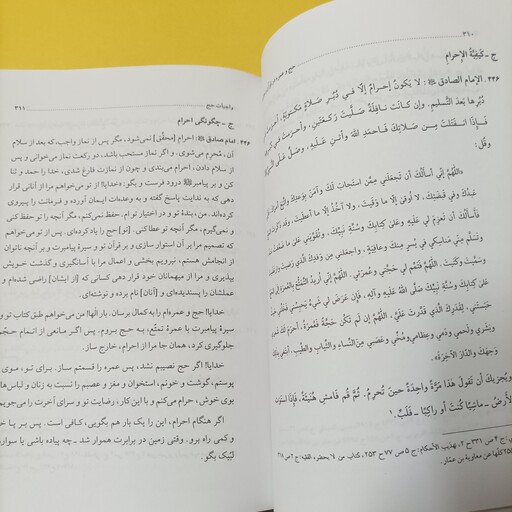 ۳۱۰
ج ـ كَيفِيَّةُ الإِحرامِ
۴۴۶. الإمام الصادق ﷺ: لا يَكونُ إحرامٌ إلّا في دُبُرِ صَلاةٍ مَكتوبَةٍ،
دُبُرِها بَعدَ التَّسليمِ. وإن كانَت نافِلَةً صَلَّيتَ رَكعَتَينِ، وأحرَمتَ
فَإِذَا انفَتَلتَ مِن صَلاتِكَ فَاحمَدِ اللّهَ وأثنِ عَلَيهِ، وصَلِّ عَلَى
وقُل:
«اللّهُمَّ إنّي أسأَلُكَ أن تَجعَلَني مِمَّنِ استَجابَ لَكَ وآمَنَ بِوَعدِكَ واتَّبَعَ
عَبدُكَ وفي قَبضَتِكَ، لا اوقى إلّا ما وَقَيتَ، ولا آخُذُ إلّا ما أعطَيتَ، وقَد ذَكَرتَ
فَأَسأَلُكَ أن تَعزِمَ لي عَلَيهِ عَلى كِتابِكَ وسُنَّةِ نَبِيِّكَ، وتُقَوِّيَني عَلى ما ضَعُفتُ
وتَسَلَّمَ مِنّي مَناسِكي في يُسرٍ مِنكَ وعافِيَةٍ، وَاجعَلني مِن وَفدِكَ الَّذي رَضيتَ وَارتَضَيتَ
وسَمَّيتَ وكَتَبتَ. اللّهُمَّ فَتَمِّم لي حَجَّتي وعُمرَتي. اللّهُمَّ إنّي اريدُ التَّمَتُّعَ بِالعُمرَةِ إلَى
عَلى كِتابِكَ وسُنَّةِ نَبِيِّكَ صَلَّى اللّهُ عَلَيهِ وآلِهِ، فَإِن عَرَضَ لي شَيءٌ يَحبِسُني
حَبَستَني، لِقَدَرِكَ الَّذي قَدَّرتَ عَلَيَّ. اللّهُمَّ إن لَم تَكُن حَجَّةً فَعُمرَةً. أحرَمَ لَكَ
وبَشَري ولَحمي ودَمي وعِظامي ومُخّي وعَصَبي مِنَ النِّساءِ والثِّيابِ والطّيبِ، أبتَغي بِذلِكَ
وَجهَكَ وَالدّارَ الآخِرَةَ».
ويُجزيكَ أن تَقولَ هذا مَرَّةً واحِدَةً حينَ تُحرِمُ. ثُمَّ قُم فَامشِ هُنَيئَةً، فَإِذَا استَوَت
الأَرضُ ـ ماشِيًا كُنتَ أو راكِبًا ـ فَلَبِّ. ۱
ح ۲، تهذيب الأحكام: ج ۵ ص ۷۷ ح ۲۵۳، كتاب من لا يحضره الفقيه: ج ۲ ص
كلّها عن معاوية بن عمّار.
واجبات حج ۳۱۱
ج ـ چگونگی احرام
۴۴۶. امام صادق ﷺ: احرام [محقّق] نمی‌شود، مگر پس از نماز واجب، که بعد از سلام
آن، مُحرِم می‌شوی. و اگر نماز مستحب باشد، دو رکعت نماز می‌خوانی و پس
از سلام دادن، احرام می‌بندی و چون از نمازت فارغ شدی، خدا را حمد و ثنا
کن و بر پیامبر ﷺ درود فرست و بگو: «خدایا! از تو می‌خواهم مرا از آنانی قرار
دهی که به ندایت پاسخ گفته و به وعده‌ات ایمان آورده و فرمانت را پیروی
کرده‌اند. من، بندهٔ تو و در اختیار تو ام. حفظ نمی‌کنم، مگر آنچه را تو حفظ کنی
و نمی‌گیرم، مگر آنچه تو عطا کنی. [تو] حج را یاد کرده‌ای. پس از تو می‌خواهم
که تصمیم مرا بر آن استوار سازی و بر قرآن تو و سیرهٔ پیامبرت و بر آنچه ناتوان
از انجامش هستم، نیرویم بخشی و اعمال مرا با آسانگیری و گذشت خویش
بپذیری و مرا از میهمانان خود قرار دهی کسانی که [از ایشان] راضی شده‌ای و
عملشان را پسندیده‌ای و [آنان] نام برده و نوشته‌ای.
خدایا! حج و عمره‌ام را به کمال برسان. بار الها! من می‌خواهم طبق کتاب تو و
سیرهٔ پیامبرت با عمرهٔ تمتّع، به حج بروم. پس اگر مانعی از انجام حجّم
جلوگیری کرد، همان جا مرا از احرام، خارج ساز.
خدایا! اگر حج نصیبم نشد، پس عمره را قسمتم ساز. برای تو، موی
پوستم، گوشت و خونم، استخوان و مغز و عصبم را نسبت به زنان و لباس‌ها
بوی خوش، حرام می‌کنم و با این کار، رضایت تو و سرای آخرت را می‌جویم
اگر هنگام احرام، این را یک بار هم بگویی، کافی است. پس بر پا خیز
و کمی راه برو. وقتی زمین در برابرت هموار شد ـ چه پیاده باشی یا سواره ـ
لبّیک بگو.